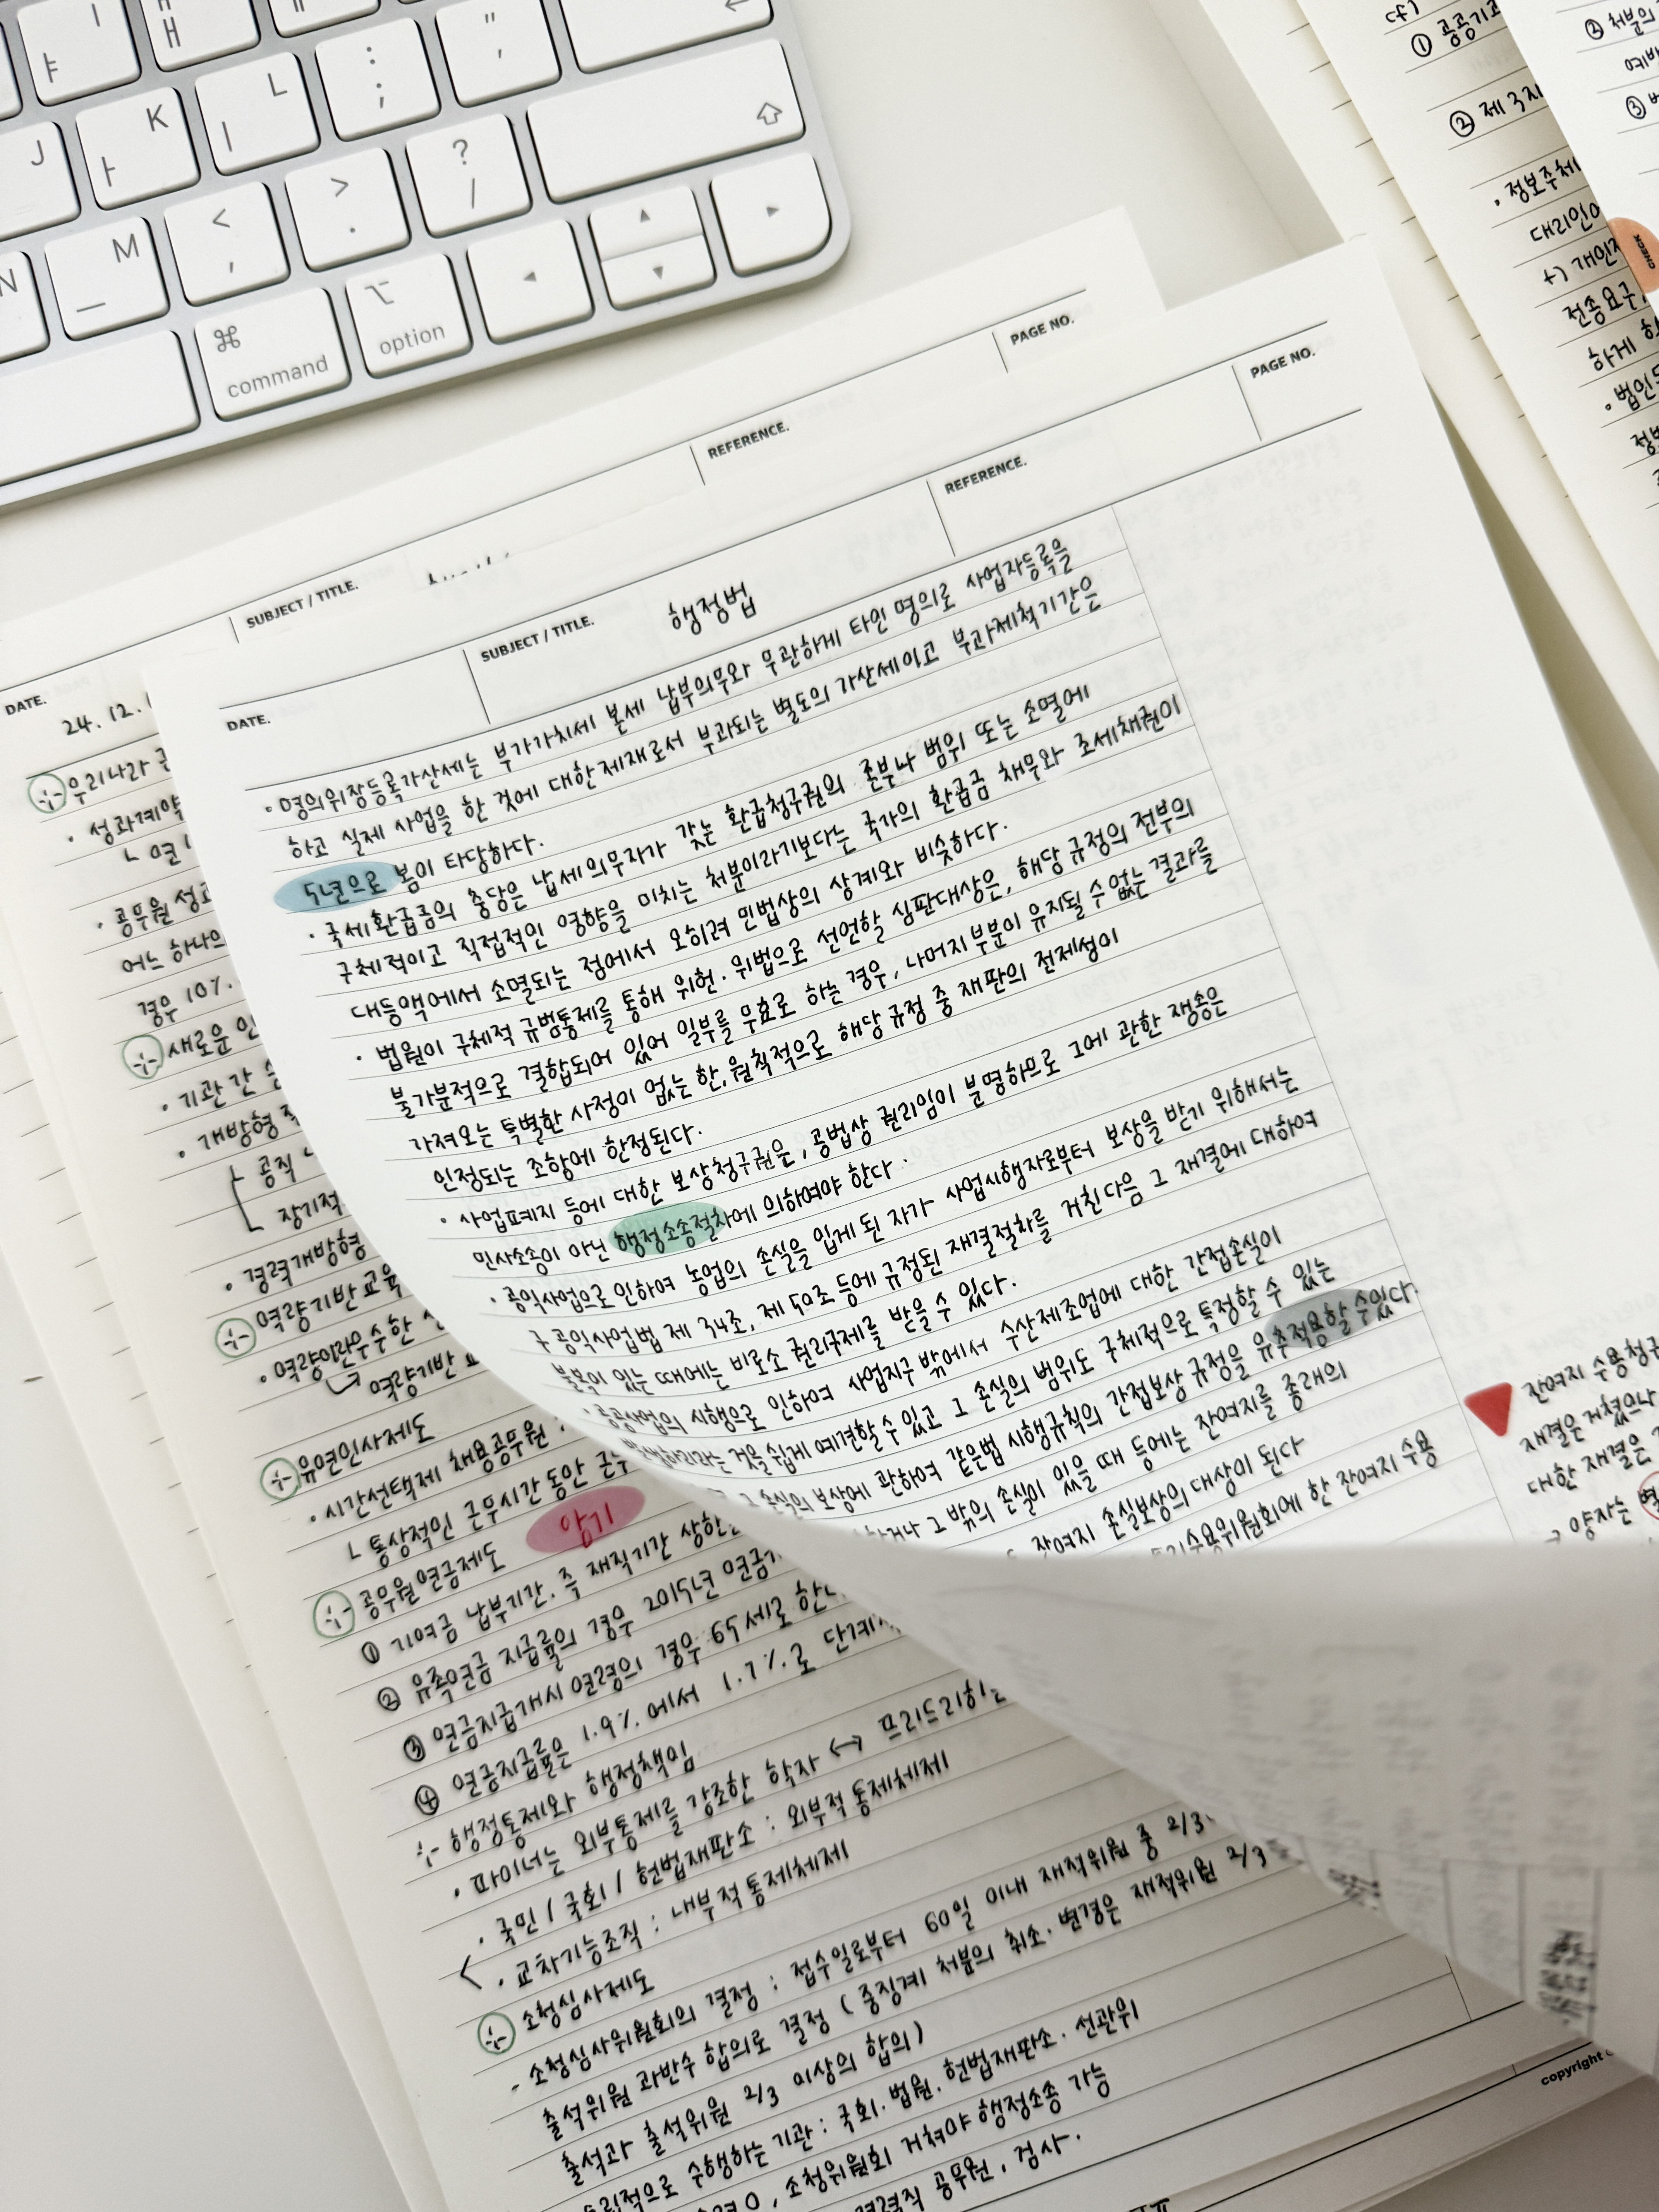 J
K
L
:
;
"
'
N
M
<
,
>
.
?
/
⌘
command
⌥
option
SUBJECT / TITLE.
REFERENCE.
PAGE NO.
DATE.
24. 12.
우리나라
· 성과계약
· 공무원 성과
어느 하나의
경우 10%.
새로운 인
· 기관 간
· 개방형
공직
장기적
· 경력개방형
역량기반교육
· 역량이란 우수한
역량기반
유연인사제도
· 시간선택제 채용공무원 :
└ 통상적인 근무시간 동안 근무
공무원연금제도 암기
① 기여금 납부기간. 즉 재직기간 상한
② 유족연금 지급률의 경우 2015년 연금
③ 연금지급개시 연령의 경우 65세로 한
④ 연금지급률은 1.9% 에서 1.7%로 단계
행정통제와 행정책임
· 파이너는 외부통제를 강조한 학자 ↔ 프리드리히
· 국민 / 국회 / 헌법재판소 : 외부적 통제체제
· 교차기능조직 : 내부적 통제체제
소청심사제도
- 소청심사위원회의 결정 : 접수일로부터 60일 이내 재적위원 중 2/3
출석위원 과반수 합의로 결정 ( 중징계 처분의 취소. 변경은 재적위원 2/3
출석과 출석위원 2/3 이상의 합의 )
수행하는 기관 : 국회. 법원. 헌법재판소. 선관위
소청위원회 거쳐야 행정소송 가능
공무원, 검사.
DATE.
SUBJECT / TITLE.
행정법
REFERENCE.
PAGE NO.
· 명의위장등록가산세는 부가가치세 본세 납부의무와 무관하게 타인 명의로 사업자등록을
하고 실제 사업을 한 것에 대한 제재로서 부과되는 별도의 가산세이고 부과제척기간은
5년으로 봄이 타당하다.
· 국세환급금의 충당은 납세의무자가 갖는 환급청구권의 존부나 범위 또는 소멸에
구체적이고 직접적인 영향을 미치는 처분이라기보다는 국가의 환급금 채무와 조세채권이
대등액에서 소멸되는 점에서 오히려 민법상의 상계와 비슷하다.
· 법원이 구체적 규범통제를 통해 위헌·위법으로 선언할 심판대상은, 해당 규정의 전부의
불가분적으로 결합되어 있어 일부를 무효로 하는 경우, 나머지 부분이 유지될 수 없는 결과를
가져오는 특별한 사정이 없는 한, 원칙적으로 해당 규정 중 재판의 전제성이
인정되는 조항에 한정된다.
· 사업폐지 등에 대한 보상청구권은, 공법상 권리임이 분명하므로 그에 관한 쟁송은
민사소송이 아닌 행정소송절차에 의하여야 한다.
· 공익사업으로 인하여 농업의 손실을 입게 된 자가 사업시행자로부터 보상을 받기 위해서는
구 공익사업법 제 34조, 제 50조 등에 규정된 재결절차를 거친 다음 그 재결에 대하여
불복이 있는 때에는 비로소 권리구제를 받을 수 있다.
· 공공사업의 시행으로 인하여 사업지구 밖에서 수산제조업에 대한 간접손실이
발생하리라는 것을 쉽게 예견할 수 있고 그 손실의 범위도 구체적으로 특정할 수 있는
그 손실의 보상에 관하여 같은법 시행규칙의 간접보상 규정을 유추적용할 수 있다.
그 밖의 손실이 있을 때 등에는 잔여지를 종래의
잔여지 손실보상의 대상이 된다
토지수용위원회에 한 잔여지 수용
잔여지 수용청구
재결은 거쳤으나
대한 재결은
양자는 별
cf)
① 공공기관
② 제 3자
· 정보주체
대리인이
+) 개인정
전송요구,
하게
· 법인
② 처분의
③
CHECK
copyright